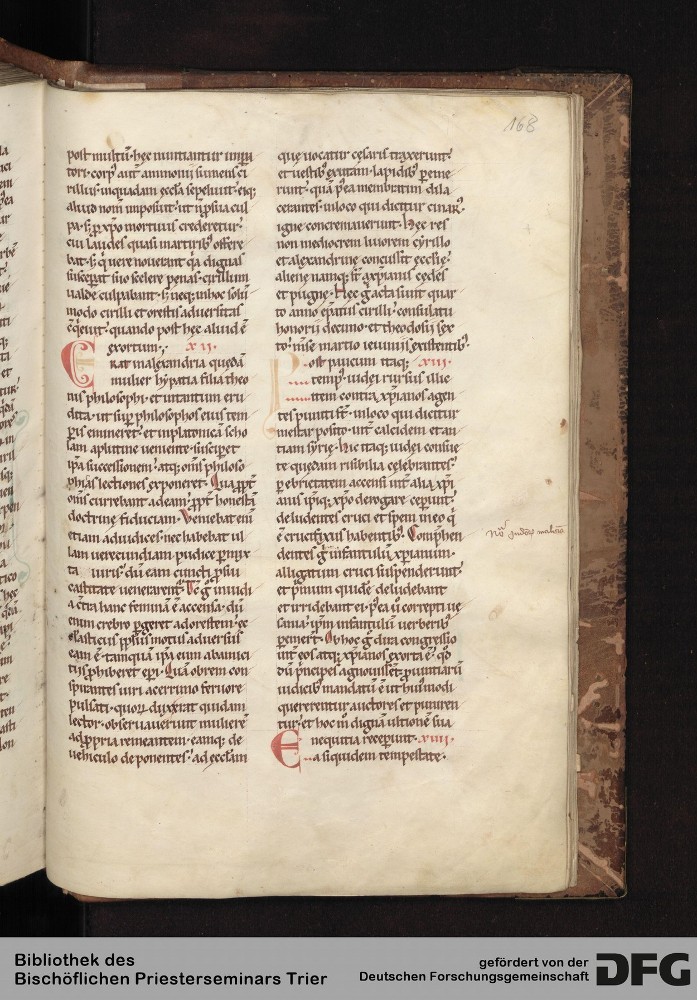 168
post multū· hęc nuntiantur impa
tori· corp' aut̄ ammonii sumens ci
rillus· inquadam ęccl̄a sepeliuit· eiq;
aliud nom̄ imposuit· ut n̄ p̄sua cul
pa· s; p̄ xp̄o mortuus crederetur·
cui laudes quasi martiribꝰ offere
bat· s; q̄ uere nouerant qa dignas
susceperat suo scelere penas· cirillum
ualde culpabant· s; neq; inhoc solū
modo cirilli et orestis aduersitas
quando post hęc aliud ē
exortum· XII·
Erat inalexandria quędā
mulier hypatia filia theo
nis philosophi· et intantum eru
dita· ut sup̄ philosophos sui tem
p̄is emineret· et inplatonicā scho
lam a plutine ueniente· susciperet
ip̄a successionem· atq; om̄s philoso
phię lectiones exponeret· Qua p̄pt̄
om̄s currebant adeam· p̄pt̄ honestā
doctrinę fiduciam· Veniebat eni
etiam adiudices· nec habebat ul
lam uerecundiam
ta uirus· dū eam cuncti
castitate uenerarent̄· Tc̄ g̊ inuidi
a c̄tra hanc feminā ē accensa· dū
enim crebro p̄geret adorestem· ec
clesiasticus motus aduersus
eam ē· tamquā ip̄a eum abamici
tiis p̄hiberet ep̄i· Quā obrem con
spirantes uiri acerrimo feruore
pulsati· quorū dux erat quidam
lector· obseruauerunt mulierē
ad p̄p̄ria remeantem· eamq; de
uehiculo deponentes· ad ęccl̄am
quę uocatur cęsaris traxerunt·
et uestibꝰ exutam· lapidibꝰ peme
runt· quā p̄ea membratim dila
cerantes· inloco qui dicitur cinarꝰ·
igne concremauerunt· Hęc res
non mediocrem liuorem cyrillo
et alexandrinę concussit ęcclęię·
alienę namq; st̄ axp̄ianis cędes
et pugnę· Hęc g̊ acta sunt quar
to anno ep̄atus cirilli· consulatu
honorii decimo· et theodosii sex
to· m̄se martio ieiuniis existentibꝰ·
Post paucum itaq; XIII·
temp' iudei rursus illic
item contra xp̄ianos agen
tes puniti st̄· inloco qui dicitur
mestar posito· int̄ calcidem et an
tiam syrię· hic itaq; iudei consue
te quędam risibilia celebrantes·
p̄ ebrietatem accensi int̄ alia xp̄i
anis ip̄iq; xp̄o derogare cęperunt·
deludentes cruci et spem ineo q̄
ē crucifixus habentibꝰ· Comp̄hen
dentes g̊ infantulū xp̄ianum·
alligatum cruci suspenderunt·
et primum quidē deludebant
et irridebant ei· p̄ea ū correpti ue
sania· ip̄m infantulū uerberibꝰ
pemert̄· Ob hoc g̊ dira congressio
int̄ eos atq; xp̄ianos exorta ē· qd̊
dū p̄ncipes agnouissent· p̄uintiarū
iudicibꝰ mandatū ē· ut huiusmodi
quererentur auctores et puniren
tur· et hoc m̊ dignā ultionē sua
nequitia receperunt· XIIII·
Ea siquidem tempestate·
Bibliothek des
Bischöflichen Priesterseminars Trier
gefördert von der
Deutschen Forschungsgemeinschaft
DFG